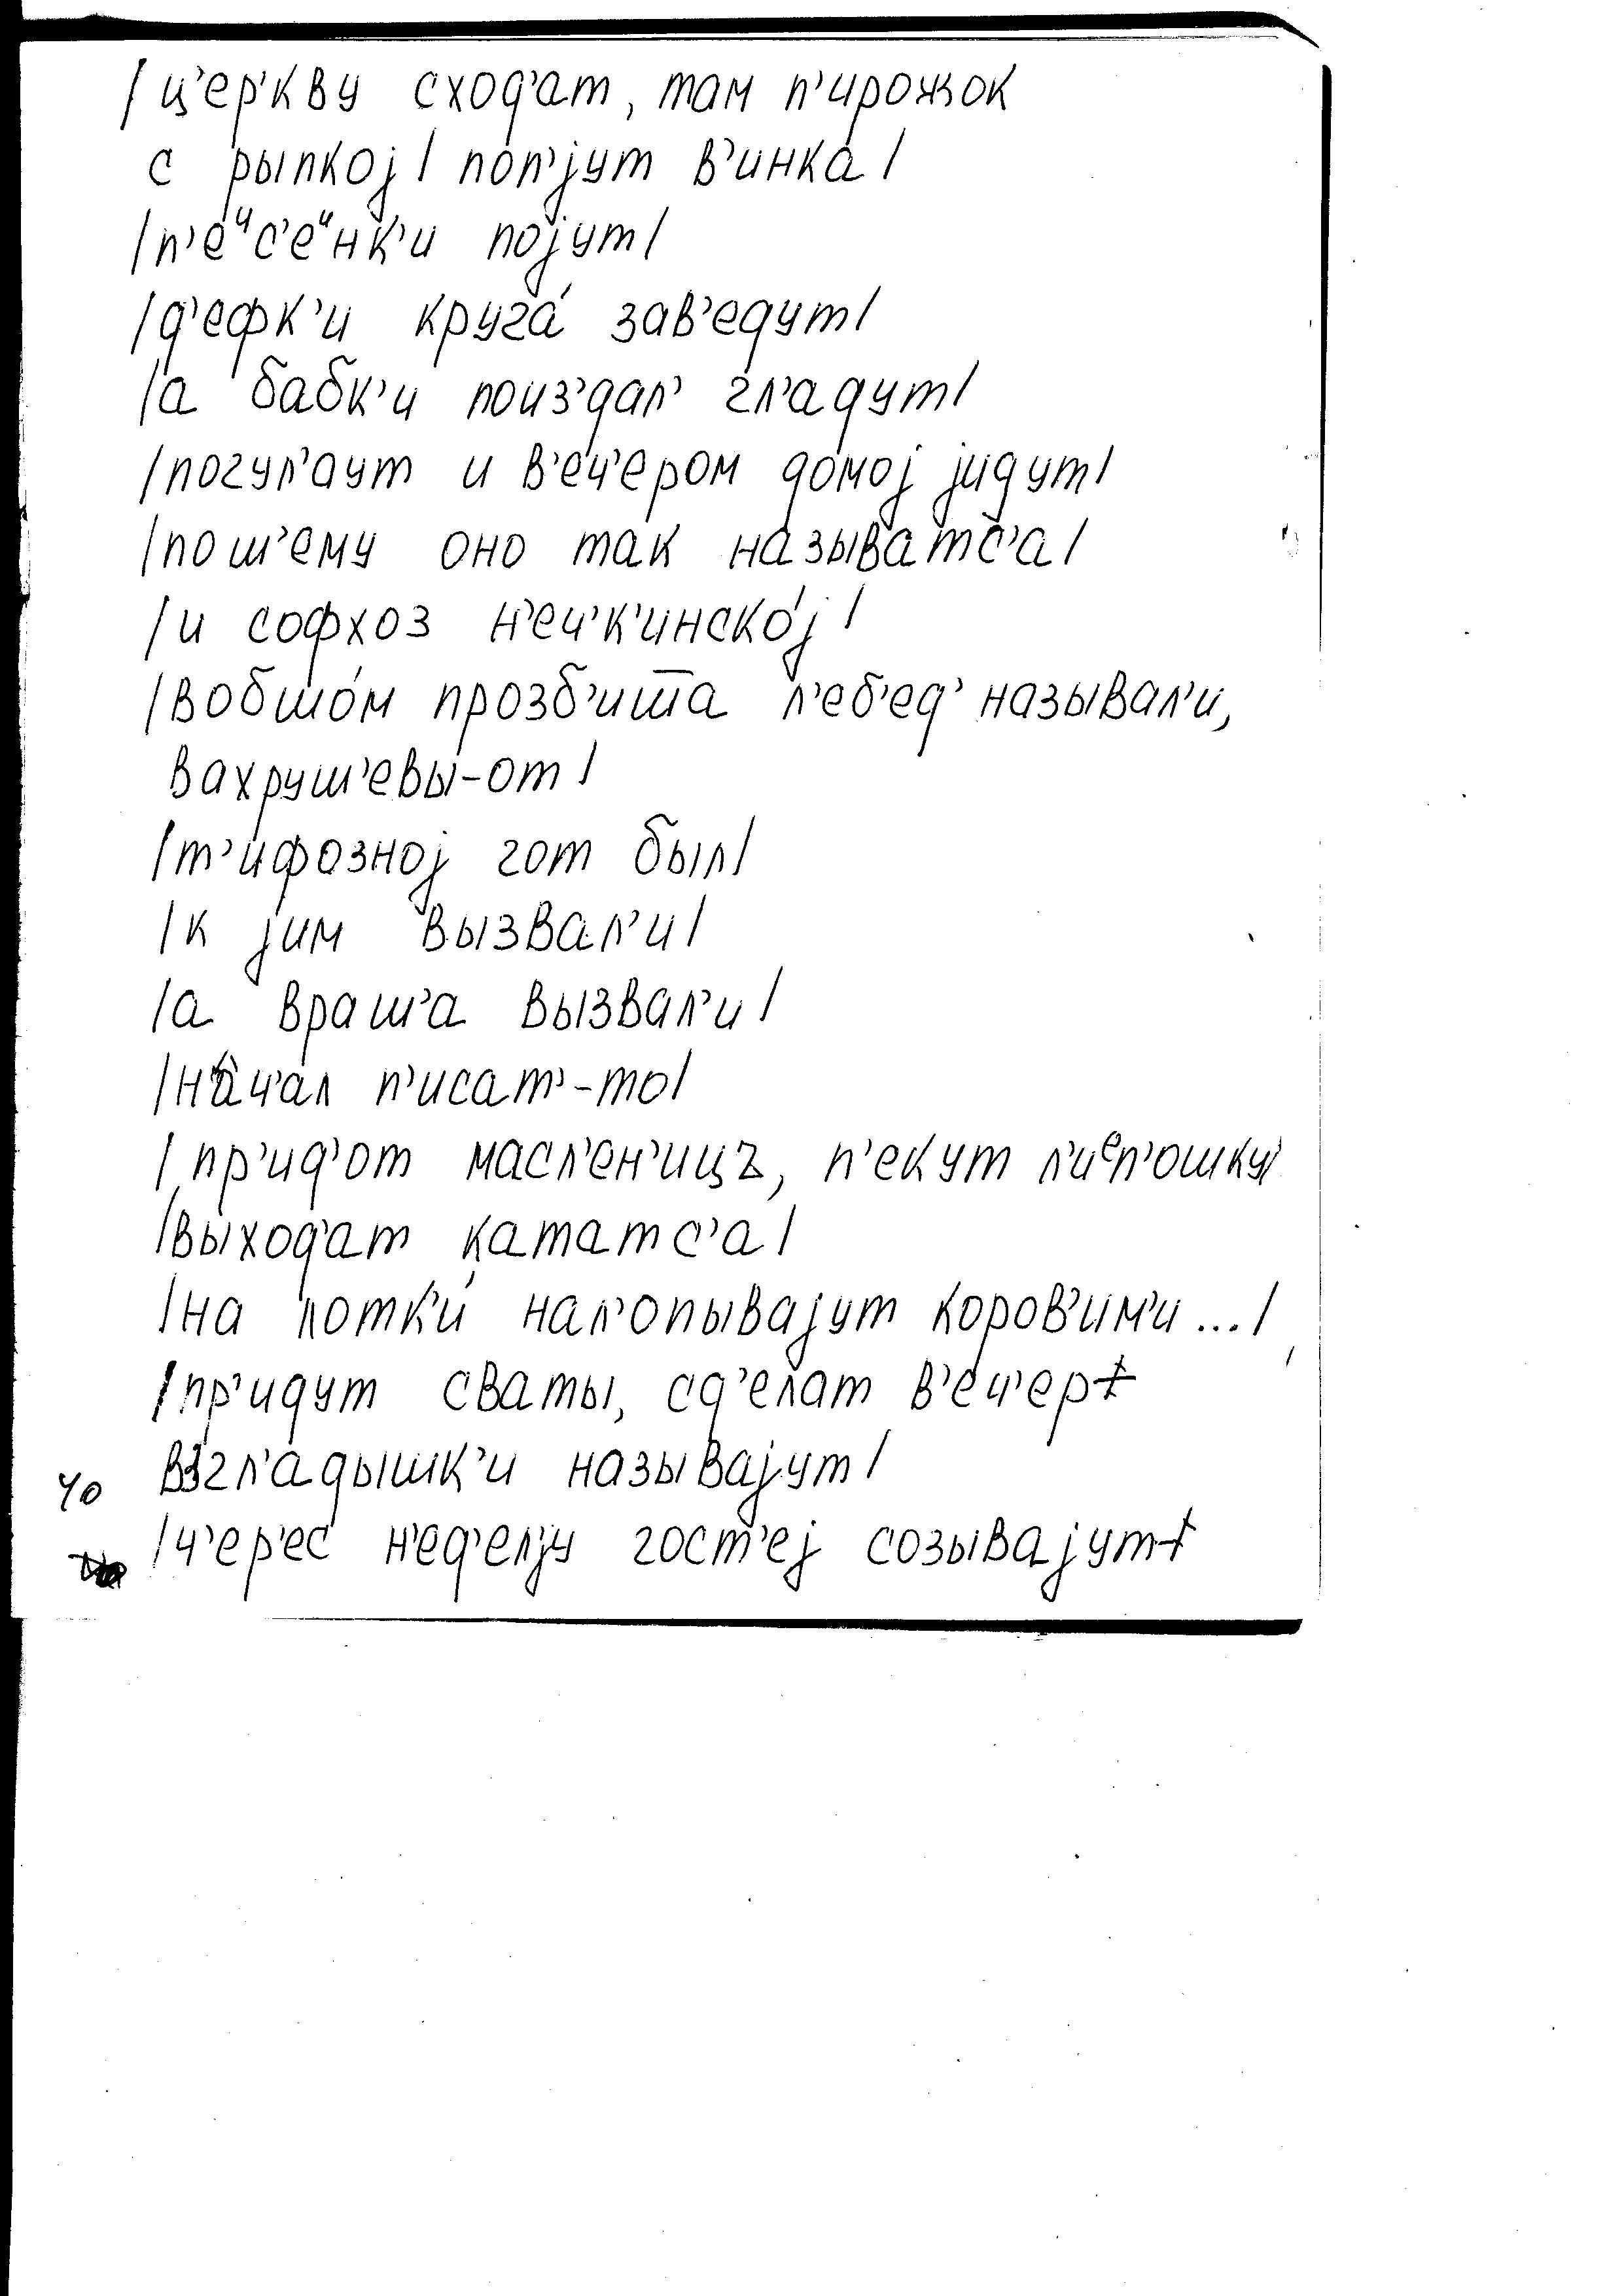 /ц'ер'кву сход'ат, там п'ирожок
с рыпкој/ поп'јут в'инка́/
/п'еᶦс'еᶦнк'и појут/
/д'ефк'и круга́ зав'едут/
/а бабк'и поиз'дал' гл'адут/
/погул'аут и в'еч'ером домој јидут/
/пош'ему оно так называтс'а/
/и софхоз н'еч'к'инско́ј/
/вобшо́м прозб'иш̅а л'еб'ед' называл'и,
вахруш'евы-от/
/т'ифозној гот был/
/к јим вызвал'и/
/а враш'а вызвал'и/
/на́ч'ал п'исат'-то/
/пр'ид'от масл'ен'ицъ, п'екут л'иᵉп'ошку/
/выход'ат кататс'а/
/на лотк'и́ нал'опывајут коров'им'и.../
/пр'идут сваты, сд'елат в'еч'ер+
взгл'адышк'и называјут/
40
/ч'ер'ес н'ед'елју гост'еј созывајут+